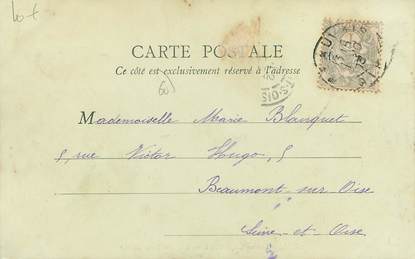 CARTE POSTALE
Ce côté est exclusivement réservé à l'adresse
Mademoiselle Marie Blanquet
5, rue Victor Hugo, 5
Beaumont sur Oise
Seine-et-Oise